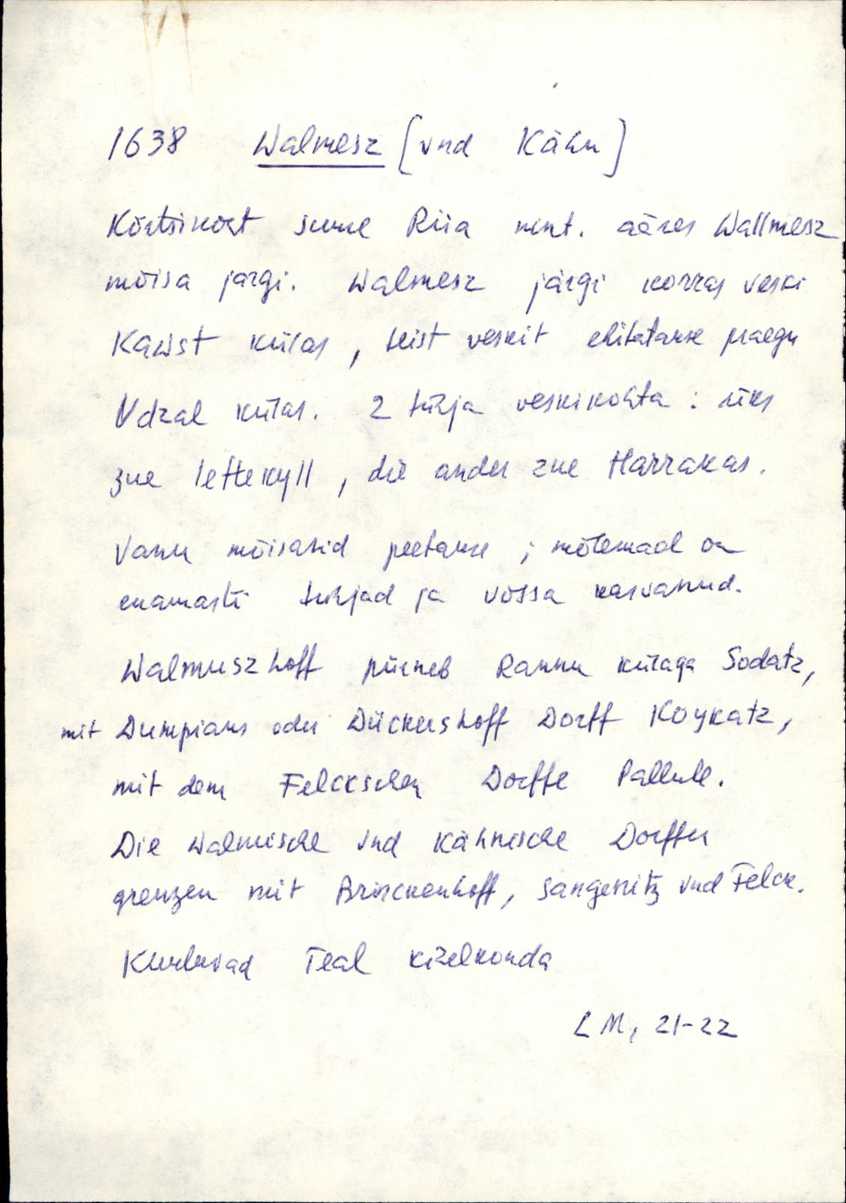 1638 Walmesz [vnd Kähn]
Kõrtsikoht suure Riia mnt. ääres Wallmesz
mõisa järgi. Walmesz järgi korras veski
Kawst külas, teist veskit ehitatakse praegu
Vdzal külas. 2 tühja veskikohta: üks
zue leftekyll, die ander zue Harrakas.
Vanu mõisasid peetakse; mõlemad on
enamasti tühjad ja võssa kasvanud.
Walmuszhoff piirneb Rannu külaga Sodatz,
mit Dumpians oder Dückershoff Dorff Koykatz,
mit dem Felckschen Dorffe Pallule.
Die Walmische vnd Kähnische Dorffer
grenzen mit Brinckenhoff, Sangenitz vnd Felck.
Kuuluvad Teal kihelkonda
LM, 21-22